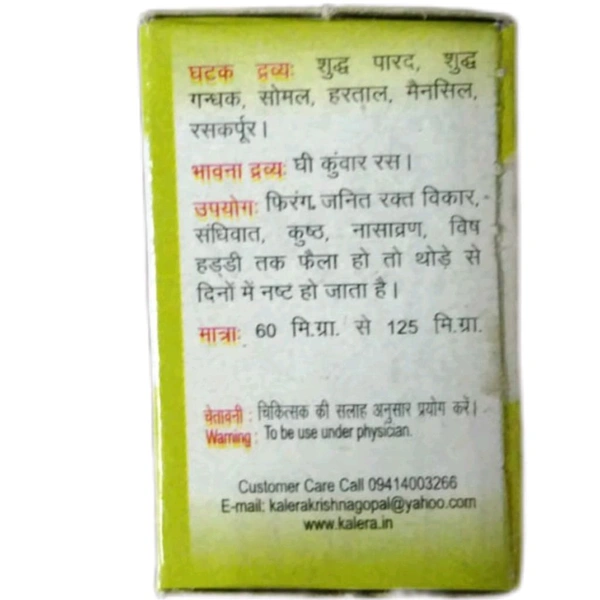 घटक द्रव्यः शुद्ध पारद, शुद्ध
गन्धक, सोमल, हरताल, मैनसिल,
रसकर्पूर।
भावना द्रव्यः घी कुंवार रस।
उपयोगः फिरंग, जनित रक्त विकार,
संधिवात, कुष्ठ, नासाव्रण, विष
हड्डी तक फैला हो तो थोड़े से
दिनों में नष्ट हो जाता है।
मात्राः 60 मि.ग्रा. से 125 मि.ग्रा.
चेतावनी : चिकित्सक की सलाह अनुसार प्रयोग करें।
Warning : To be use under physician.
Customer Care Call 09414003266
E-mail: kalerakrishnagopal@yahoo.com
www.kalera.in